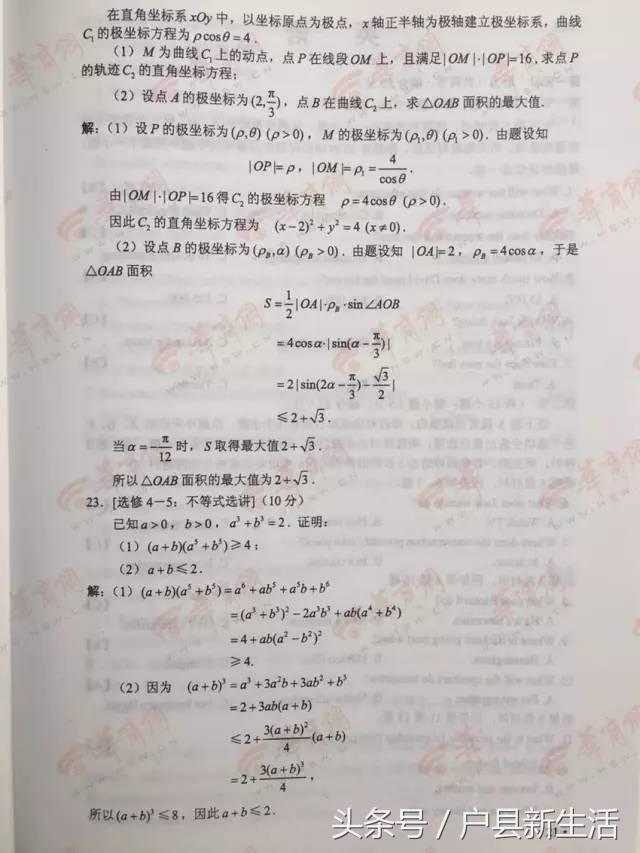 在直角坐标系 xOy 中，以坐标原点为极点，x 轴正半轴为极轴建立极坐标系，曲线
C₁ 的极坐标方程为 ρcosθ=4．
（1）M 为曲线 C₁ 上的动点，点 P 在线段 OM 上，且满足 |OM|·|OP|=16，求点 P
的轨迹 C₂ 的直角坐标方程；
（2）设点 A 的极坐标为 (2,π/3)，点 B 在曲线 C₂ 上，求 △OAB 面积的最大值．
解：（1）设 P 的极坐标为 (ρ,θ) (ρ>0)，M 的极坐标为 (ρ₁,θ) (ρ₁>0)．由题设知
|OP|=ρ，|OM|=ρ₁=4/cosθ．
由 |OM|·|OP|=16 得 C₂ 的极坐标方程 ρ=4cosθ (ρ>0)．
因此 C₂ 的直角坐标方程为 (x−2)²+y²=4 (x≠0)．
（2）设点 B 的极坐标为 (ρ_B,α) (ρ_B>0)．由题设知 |OA|=2，ρ_B=4cosα，于是
△OAB 面积
S=1/2|OA|·ρ_B·sin∠AOB
=4cosα·|sin(α−π/3)|
=2|sin(2α−π/3)−√3/2|
≤2+√3．
当 α=−π/12 时，S 取得最大值 2+√3．
所以 △OAB 面积的最大值为 2+√3．
23．[选修 4—5：不等式选讲]（10 分）
已知 a>0，b>0，a³+b³=2．证明：
（1）(a+b)(a⁵+b⁵)≥4；
（2）a+b≤2．
解：（1）(a+b)(a⁵+b⁵)=a⁶+ab⁵+a⁵b+b⁶
=(a³+b³)²−2a³b³+ab(a⁴+b⁴)
=4+ab(a²−b²)²
≥4.
（2）因为 (a+b)³=a³+3a²b+3ab²+b³
=2+3ab(a+b)
≤2+3(a+b)²/4(a+b)
=2+3(a+b)³/4，
所以 (a+b)³≤8，因此 a+b≤2．
头条号／户县新生活